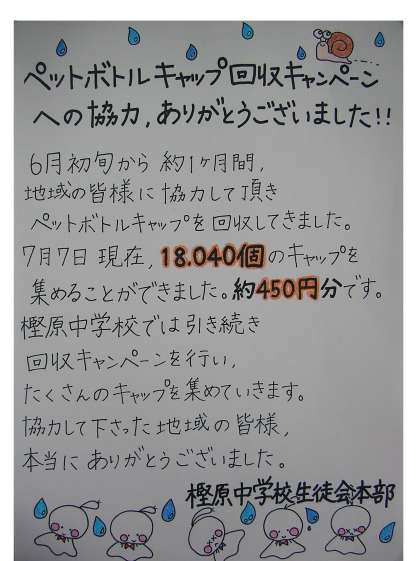 ペットボトルキャップ回収キャンペーン
への協力,ありがとうございました!!
6月初旬から 約1ヶ月間,
地域の皆様に協力して頂き
ペットボトルキャップを回収してきました。
7月7日 現在,18.040個のキャップを
集めることができました。約450円分です。
樫原中学校では引き続き
回収キャンペーンを行い,
たくさんのキャップを集めていきます。
協力して下さった地域の皆様,
本当に ありがとうございました。
樫原中学校生徒会本部